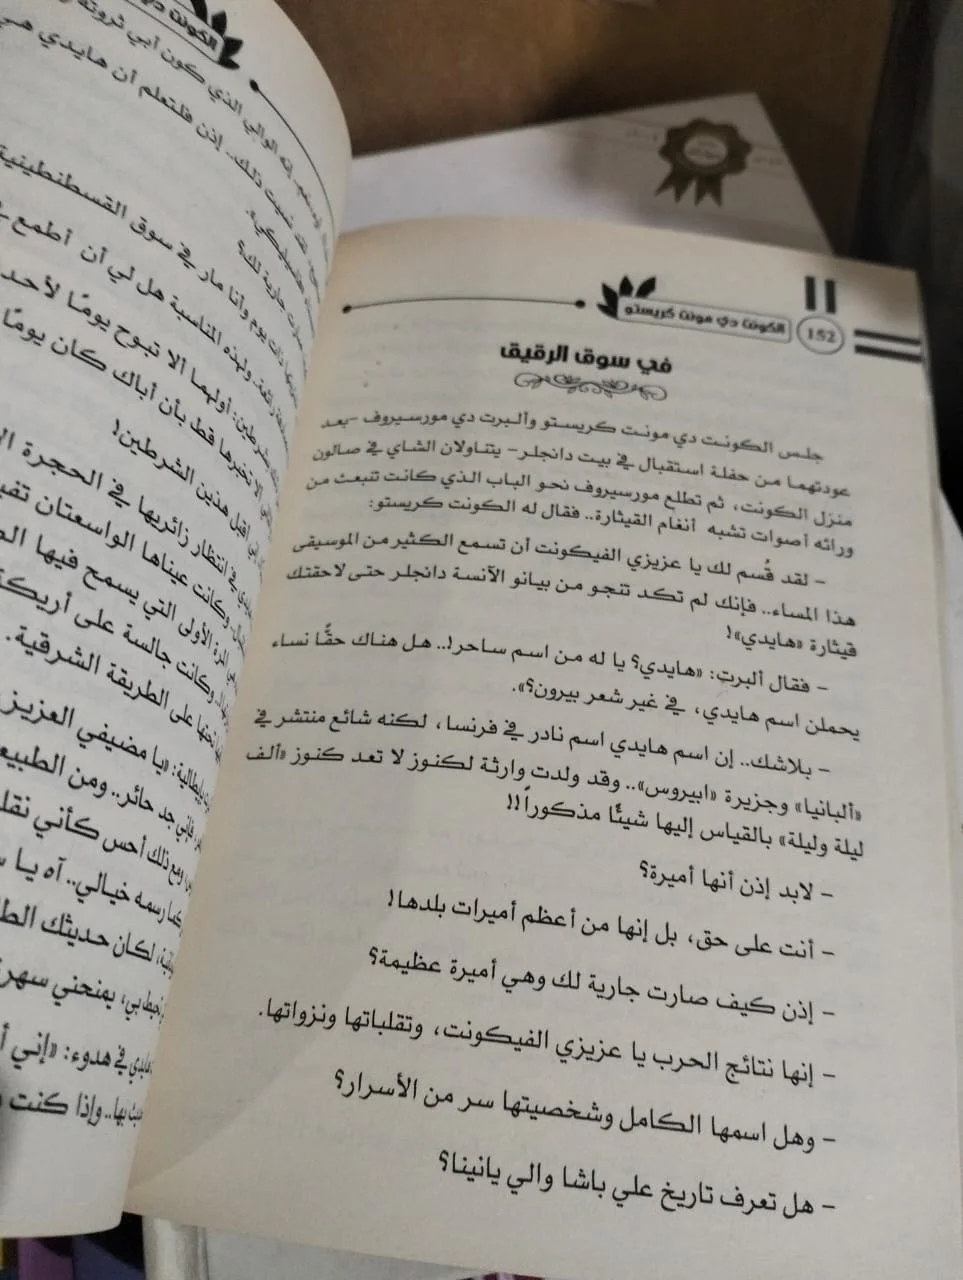 152
الكونت دي مونت كريستو
في سوق الرقيق
جلس الكونت دي مونت كريستو وألبرت دي مورسيروف -بعد
عودتهما من حفلة استقبال في بيت دانجلر- يتناولان الشاي في صالون
منزل الكونت، ثم تطلع مورسيروف نحو الباب الذي كانت تنبعث من
ورائه أصوات تشبه أنغام القيثارة.. فقال له الكونت كريستو:
- لقد قُسم لك يا عزيزي الفيكونت أن تسمع الكثير من الموسيقى
هذا المساء.. فإنك لم تكد تنجو من بيانو الآنسة دانجلر حتى لاحقتك
قيثارة «هايدي»!
- فقال ألبرت: «هايدي؟ يا له من اسم ساحر!.. هل هناك حقًّا نساء
يحملن اسم هايدي، في غير شعر بيرون؟».
- بلاشك.. إن اسم هايدي اسم نادر في فرنسا، لكنه شائع منتشر في
«ألبانيا» وجزيرة «ابيروس».. وقد ولدت وارثة لكنوز لا تعد كنوز «ألف
ليلة وليلة» بالقياس إليها شيئًا مذكوراً!!
- لابد إذن أنها أميرة؟
- أنت على حق، بل إنها من أعظم أميرات بلدها!
- إذن كيف صارت جارية لك وهي أميرة عظيمة؟
- إنها نتائج الحرب يا عزيزي الفيكونت، وتقلباتها ونزواتها.
- وهل اسمها الكامل وشخصيتها سر من الأسرار؟
- هل تعرف تاريخ علي باشا والي يانينا؟
الكونت دي
إنه الوالي الذي كون أبي ثروته
لقد نسيت ذلك.. إذن فلتعلم أن هايدي هي
صارت جارية لك؟
ذات يوم وأنا مار في سوق القسطنطينية
رائعة. ولهذه المناسبة هل لي أن أطمع في
بشرطين: أولهما ألا تبوح يومًا لأحد
ألا تخبرها قط بأن أباك كان يومًا
أقبل هذين الشرطين!
في انتظار زائريها في الحجرة
وكانت عيناها الواسعتان
المرة الأولى التي يسمح فيها
وكانت جالسة على أريكة
تحتها على الطريقة الشرقية.
بإيطالية: «يا مضيفي العزيز
فإني جد حائر.. ومن الطبيعي
ومع ذلك أحس كأني
كما رسمه خيالي.. آه يا
لكان حديثك
يمنحني سهرة
في هدوء: «إني
بها.. وإذا كنت